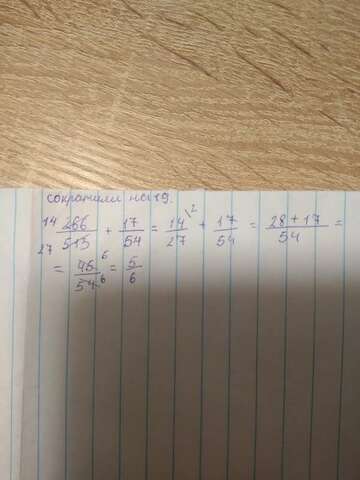 сократили на 19.
14 266/513 27 + 17/54 = 14/27 \2 + 17/54 = 28+17/54 =
= 45/54 6 6 = 5/6